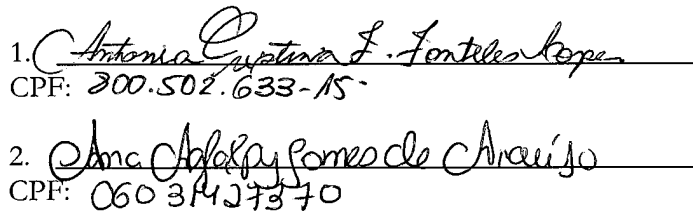 1. Antonia Cristina F. Fonteles Lopes
CPF: 800.502.633-15
2. Ana Gomes de Araújo
CPF: 060 314273 70